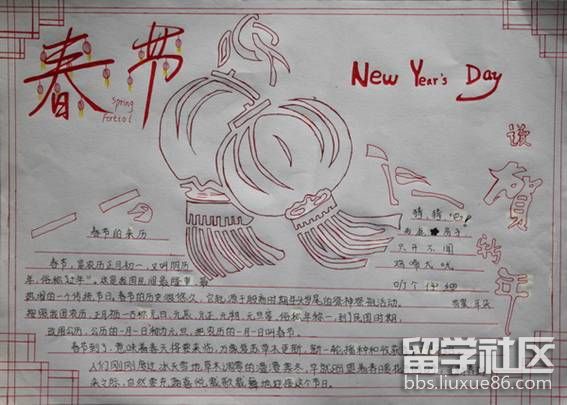 春节
Spring
New Year's Day
谨贺新年
春节的来历
春节,是农历正月初一,又叫阴历
年,俗称"过年"。这是我国民间最隆重、最
热闹的一个传统节日。春节的历史很悠久,它起源于殷商时期年头岁尾的祭神祭祖活动。
按照我国农历,正月初一古称元日、元辰、元正、元朔、元旦等,俗称年初一,到了民国时期,
改用公历,公历的一月一日称为元旦,把农历的一月一日叫春节。
春节到了,意味着春天将要来临,万象复苏草木更新,新一轮播种和收获
人们刚刚度过冰天雪地草木凋零的漫漫寒冬,早就盼望着春暖花
来之际,自然要充满喜悦载歌载舞地迎接这个节日。
猜猜吧!
只开不闻
鸡啼犬吠
留学社区
bbs.liuxue86.com